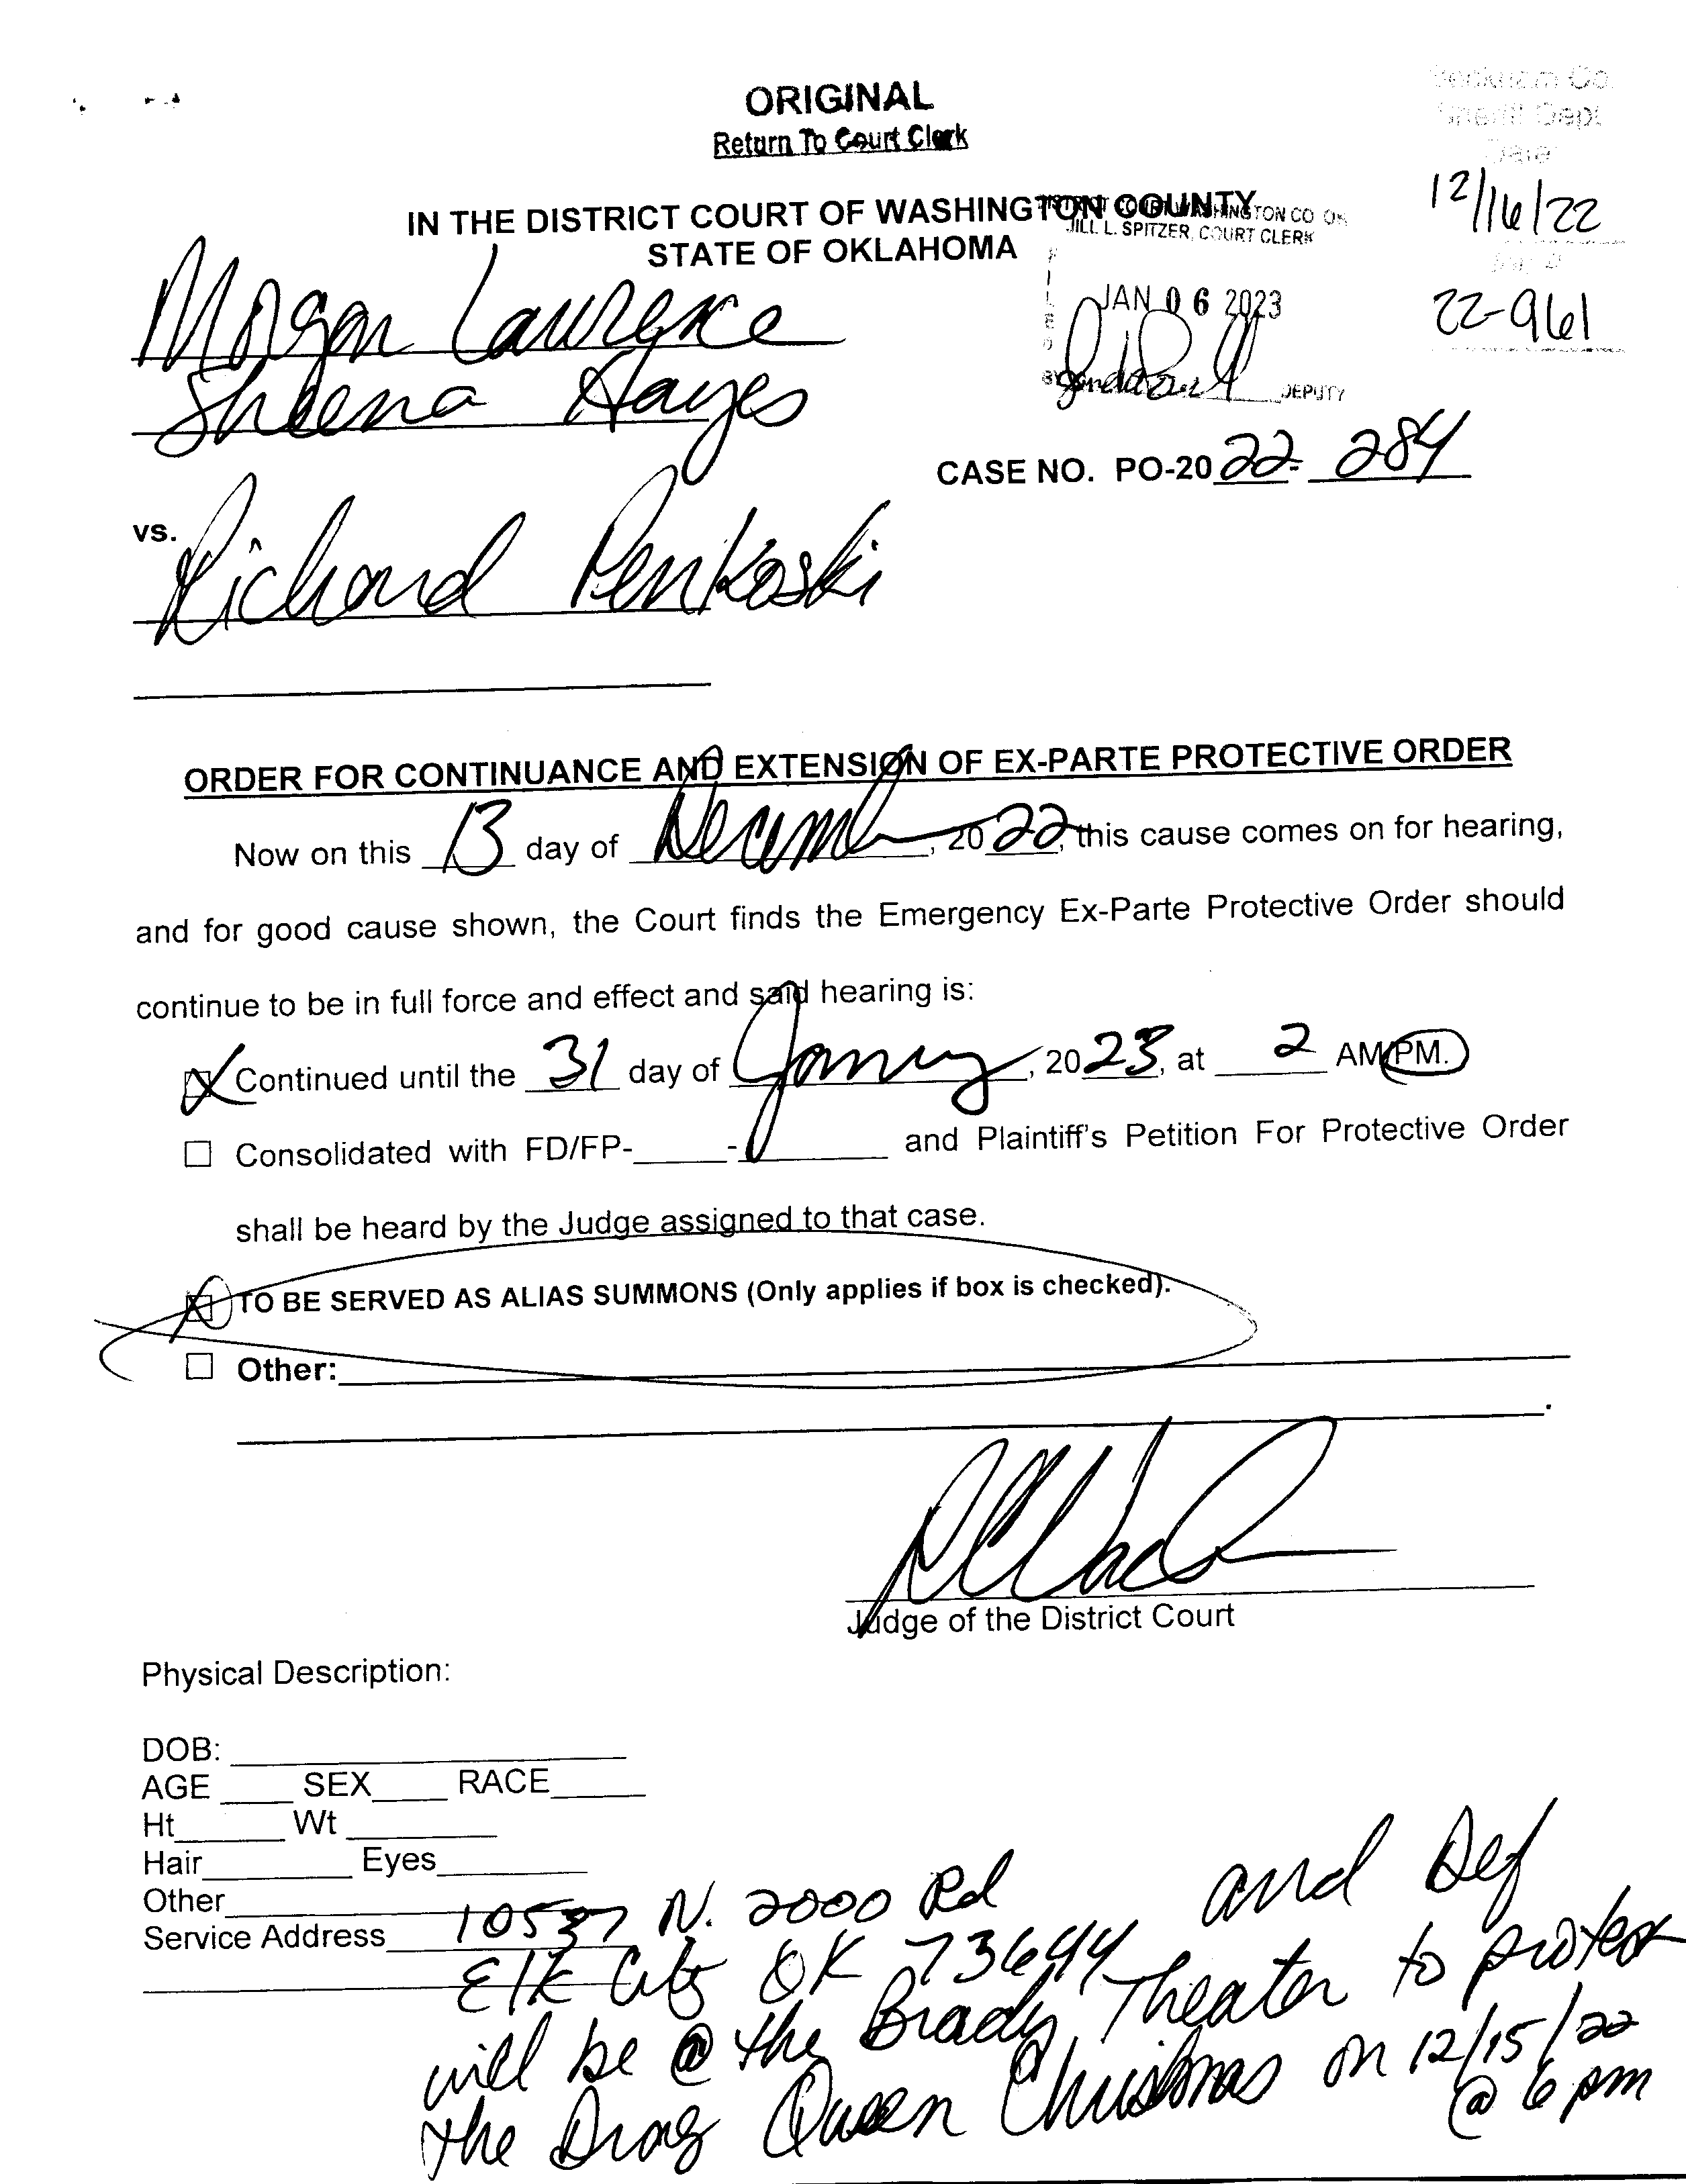 ORIGINAL
Return To Court Clerk
Beckham Co.
Sheriff Dept
Date
12/16/22
22-961
IN THE DISTRICT COURT OF WASHINGTON COUNTY
STATE OF OKLAHOMA
DISTRICT COURT WASHINGTON CO OK
JILL L. SPITZER, COURT CLERK
FILED
JAN 06 2023
BY DEPUTY
Morgan Lawrence
Sheena Hayes
CASE NO. PO-2022-284
vs.
Richard Penkoski
ORDER FOR CONTINUANCE AND EXTENSION OF EX-PARTE PROTECTIVE ORDER
Now on this 13 day of December, 2022, this cause comes on for hearing,
and for good cause shown, the Court finds the Emergency Ex-Parte Protective Order should
continue to be in full force and effect and said hearing is:
Continued until the 31 day of January, 2023, at 2 AM/PM.
Consolidated with FD/FP-_____-_____ and Plaintiff's Petition For Protective Order
shall be heard by the Judge assigned to that case.
TO BE SERVED AS ALIAS SUMMONS (Only applies if box is checked).
Other:
Judge of the District Court
Physical Description:
DOB:
AGE SEX RACE
Ht Wt
Hair Eyes
Other
Service Address 10537 N. 2000 Rd
Elk City OK 73644 and Def
will be @ the Brady Theater to protest
the Drag Queen Christmas on 12/15/22
@ 6 pm